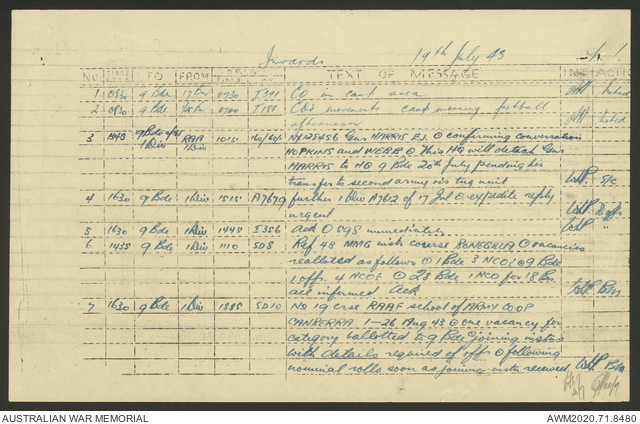 Inwards 19th July 43
NO TO FROM TEXT OF MESSAGE
1 0830 9 Bde 17 Bn 0730 I391 CO in camp area
2 0830 9 Bde 0700 I188 COs movements camp morning football
afternoon
3 1845 9 Bde 1 Div RAA 1 Div 1015 NX125656 Gnr HARRIS E.J. confirming conversation
HOPKINS and WEBB This HQ will detach Gnr
HARRIS to HQ 9 Bde 20th July pending his
transfer to second army trg unit
4 1630 9 Bde 1 Div 1515 A7679 further 1 Div A7612 of 17 Jul expedite reply
urgent
5 1630 9 Bde 1 Div 1445 I356 Ack O598 immediately
6 1435 9 Bde 1 Div 1110 SD8 Ref 48 MMG course BONEGILLA vacancies
reallotted as follows 1 Bde 3 NCOs 9 Bde
1 offr 4 NCOs 28 Bde 1 NCO for 18 Bn
all informed Ack
7 1630 9 Bde 1 Div SD10 No 19 crse RAAF school of ARMY COOP
CANBERRA 1-26 Aug 43 one vacancy for
category ballotted to 9 Bde joining instns
with details required of offr following
nominal rolls soon as joining instns received BM
AUSTRALIAN WAR MEMORIAL AWM2020.71.8480